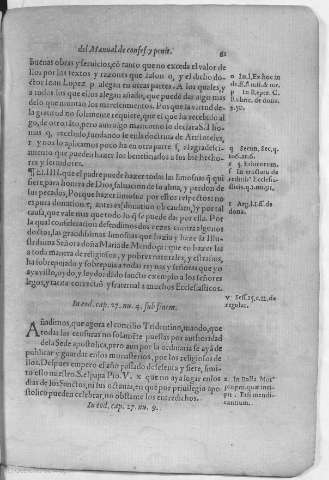 del Manual de confes. y penit. 81
buenas obras y seruicios, cō tanto que no exceda el valor de
llos por los textos y razones que Iason o, y el dicho do-
ctor Ioan Lopez p alegan en otras partes. A los quales, y
a todos los que ellos alegan añade, que puede dar algo mas
de lo que montan los merecimientos. Por que la virtud de
la gratitud no solamente requiere, que el que ha recebido al
go, de otro tāto, pero aun algo mas
q, recebido, fundando se en la doctrina de Aristoteles,
r, y nos lo aplicamos poco ha en otra parte s, alegādo
mente que pueden hazer los beneficiados a sus biē hecho-
res y seruidores.
¶ LIIII. que el padre puede hazer todas las limosnas q̄ qui
siere, para honra de Dios, saluacion de la alma, y perdon de
sus pecados. Porque hazer limosna por estos respectos: no
es pura donacion, antes es donation ob causam, t y por tal
causa, que vale mas que todo lo q̄ se puede dar por ella. Por
la qual consideracion defendimos dos vezes contra algunos
doctos, las grandissimas limosnas que hazia y haze la Illu-
strissima Señora doña Maria de Mendoça: que en hazer las
a toda manera de religiosos, y pobres naturales, y estraños,
ha sobrepujado y sobrepuja a todas reynas y señoras que yo
aya visto, oydo, y leydo: dādo sancto exemplo a los señores
legos, y tacita correctiō y fraternal a muchos Ecclesiasticos.
In eod. cap. 27. nu. 4. sub finem.
Añadimos, que agora el concilio Tridentino, mando, que
todas las censuras no solamēte puestas por authoridad
de la Sede apostolica, pero aun por la ordinaria se ayā de
publicar y guardar en los monasterios, por los religiosos de
llos. Despues empero el año passado de sesenta y siete, limi-
to esto nuestro S. el papa Pio. V. x que no aya lugar en los
dias de los Sanctos, ni sus octauas, en que por priuilegio apo
stolico pueden celebrar, no obstante los entredichos.
In eod. cap. 27. nu. 9.
o In l. Ex hoc in
p In Repet. C.
q Secun. Sec. q.
r 5. Ethicorum.
s In tractatu de
reditib⁹ Ecclesia-
sticis. q. 1. nu. 91.
t Arg. l. 1. ff. de
dona.
v Sess. 25. c. 12. de
regular.
x In Bulla Mot⁹
proprij. quæ inci-
pit. Etsi mendi-
cantium.